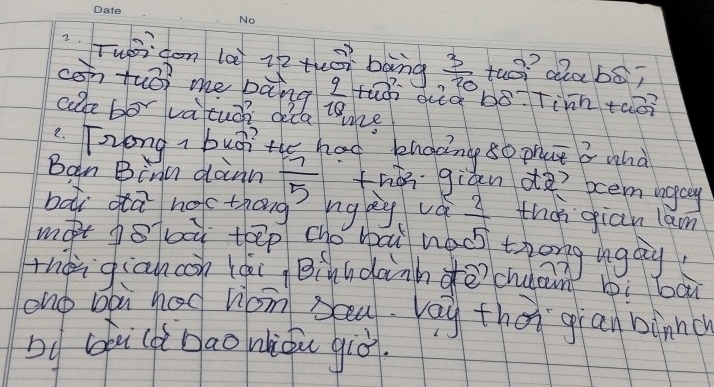 Date No
1. Tuổi con là 12 tuổi bằng 3/10 tuổi của bố,
còn tuổi mẹ bằng 9/10 tuổi của bố. Tính tuổi
của bố và tuổi của mẹ
2. Trong 1 buổi tự học khoảng 80 phút ở nhà
Bạn Bình dành 1/5 thời gian để xem ngay
bài đã học trong ngày và 2/5 thời gian làm
một số bài tập cho bài học trong ngày,
thời gian còn lại, Bình dành để chuẩn bị bài
cho bài học hôm sau. Vậy thời gian bình ch
bị bài là bao nhiêu giờ.